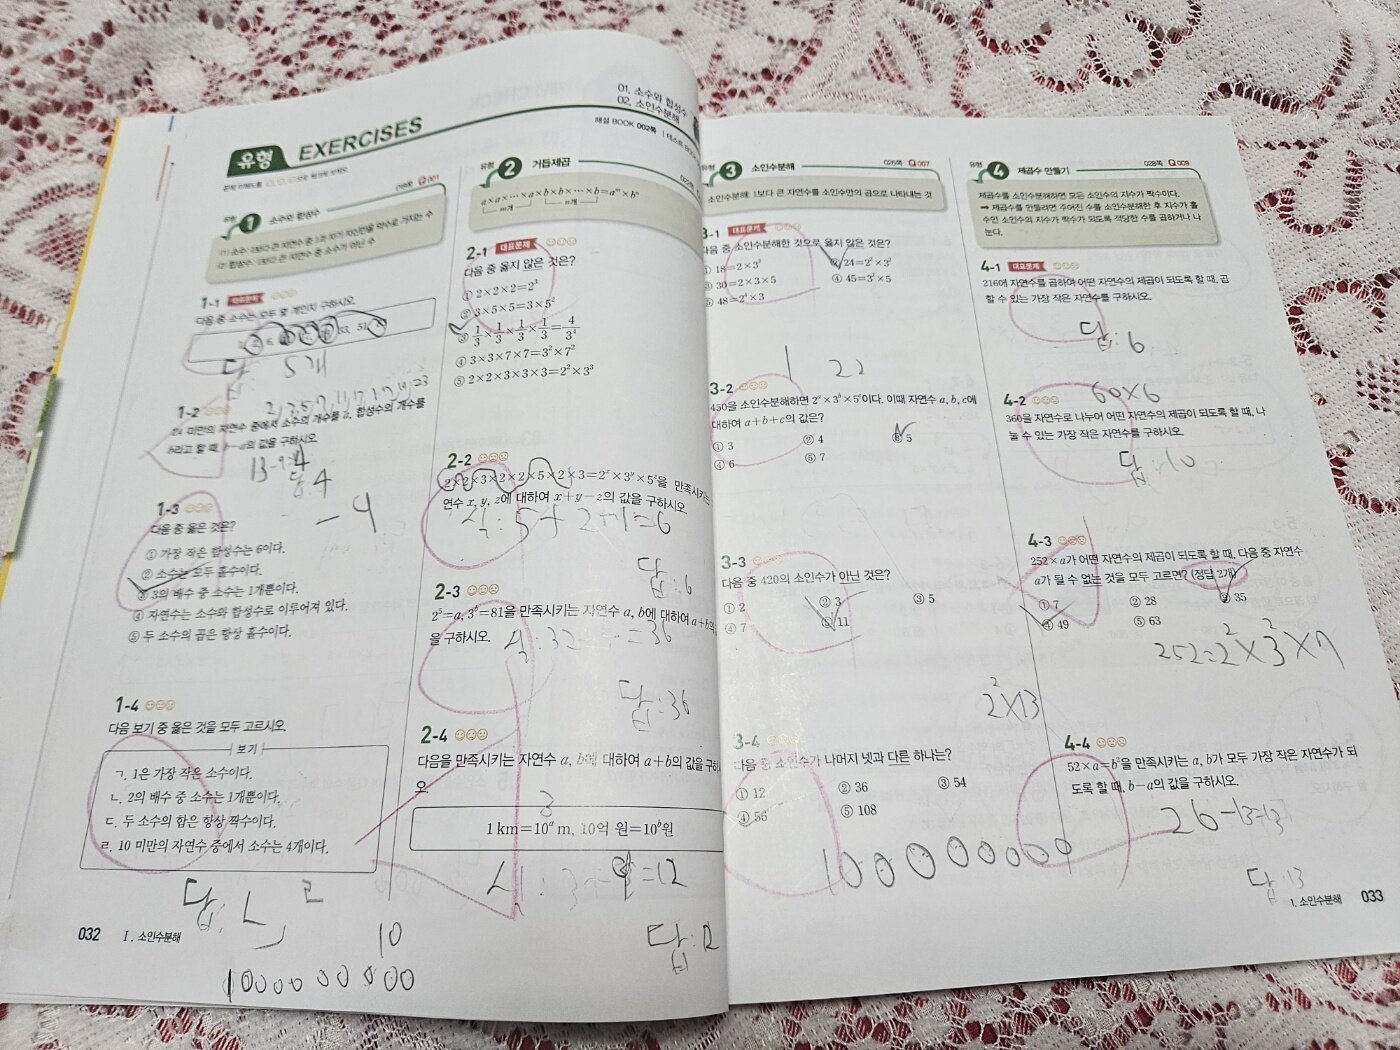 유형 EXERCISES
01. 소수와 합성수
02. 소인수분해
해설 BOOK 002쪽
유형 1 소수와 합성수
Q 001
1-1 대표문제
다음 중 소수는 모두 몇 개인지 구하시오.
33, 51
답: 5개
2, 3, 5, 7, 11, 13, 17, 19, 23
1-2
24 미만의 자연수 중에서 소수의 개수를 a, 합성수의 개수를
b라고 할 때, b-a의 값을 구하시오.
13-9=4
답. 4
-4
1-3
다음 중 옳은 것은?
① 가장 작은 합성수는 6이다.
② 소수는 모두 홀수이다.
③ 3의 배수 중 소수는 1개뿐이다.
④ 자연수는 소수와 합성수로 이루어져 있다.
⑤ 두 소수의 곱은 항상 홀수이다.
1-4
다음 보기 중 옳은 것을 모두 고르시오.
보기
ㄱ. 1은 가장 작은 소수이다.
ㄴ. 2의 배수 중 소수는 1개뿐이다.
ㄷ. 두 소수의 합은 항상 짝수이다.
ㄹ. 10 미만의 자연수 중에서 소수는 4개이다.
답: ㄴ, ㄹ
10
1000000000
032 Ⅰ. 소인수분해
유형 2 거듭제곱
a×a×⋯×a×b×b×⋯×b=aᵐ×bⁿ
m개 n개
2-1 대표문제
다음 중 옳지 않은 것은?
① 2×2×2=2³
② 3×5×5=3×5²
③ 1/3×1/3×1/3×1/3=4/3⁴
④ 3×3×7×7=3²×7²
⑤ 2×2×3×3×3=2²×3³
2-2
2×2×3×2×2×5×2×3=2ˣ×3ʸ×5ᶻ을 만족시키는
연수 x, y, z에 대하여 x+y-z의 값을 구하시오.
식: 5+2+1=6
답: 6
2-3
2⁵=a, 3ᵇ=81을 만족시키는 자연수 a, b에 대하여 a+b의
을 구하시오.
=36
답: 36
2-4
다음을 만족시키는 자연수 a, b에 대하여 a+b의 값을 구하
오.
3
1 km=10ᵃ m, 10억 원=10ᵇ원
식: 3+9=12
답: 12
유형 3 소인수분해
026쪽 Q 007
소인수분해: 1보다 큰 자연수를 소인수만의 곱으로 나타내는 것
3-1 대표문제
다음 중 소인수분해한 것으로 옳지 않은 것은?
① 18=2×3²
② 24=2²×3²
③ 30=2×3×5
④ 45=3²×5
⑤ 48=2⁴×3
1 22
3-2
450을 소인수분해하면 2ᵃ×3ᵇ×5ᶜ이다. 이때 자연수 a, b, c에
대하여 a+b+c의 값은?
① 3 ② 4 ③ 5
④ 6 ⑤ 7
3-3
다음 중 420의 소인수가 아닌 것은?
① 2 ② 3 ③ 5
④ 7 ⑤ 11
2²×13
3-4
다음 중 소인수가 나머지 넷과 다른 하나는?
① 12 ② 36 ③ 54
④ 56 ⑤ 108
1000000000
유형 4 제곱수 만들기
028쪽 Q 009
제곱수를 소인수분해하면 모든 소인수의 지수가 짝수이다.
➡ 제곱수를 만들려면 주어진 수를 소인수분해한 후 지수가 홀
수인 소인수의 지수가 짝수가 되도록 적당한 수를 곱하거나 나
눈다.
4-1 대표문제
216에 자연수를 곱하여 어떤 자연수의 제곱이 되도록 할 때, 곱
할 수 있는 가장 작은 자연수를 구하시오.
답: 6
60×6
4-2
360을 자연수로 나누어 어떤 자연수의 제곱이 되도록 할 때, 나
눌 수 있는 가장 작은 자연수를 구하시오.
답: 10
4-3
252×a가 어떤 자연수의 제곱이 되도록 할 때, 다음 중 자연수
a가 될 수 없는 것을 모두 고르면? (정답 2개)
① 7 ② 28 ③ 35
④ 49 ⑤ 63
252=2²×3²×7
4-4
52×a=b²을 만족시키는 a, b가 모두 가장 작은 자연수가 되
도록 할 때, b-a의 값을 구하시오.
26-13=13
답: 13
Ⅰ. 소인수분해 033